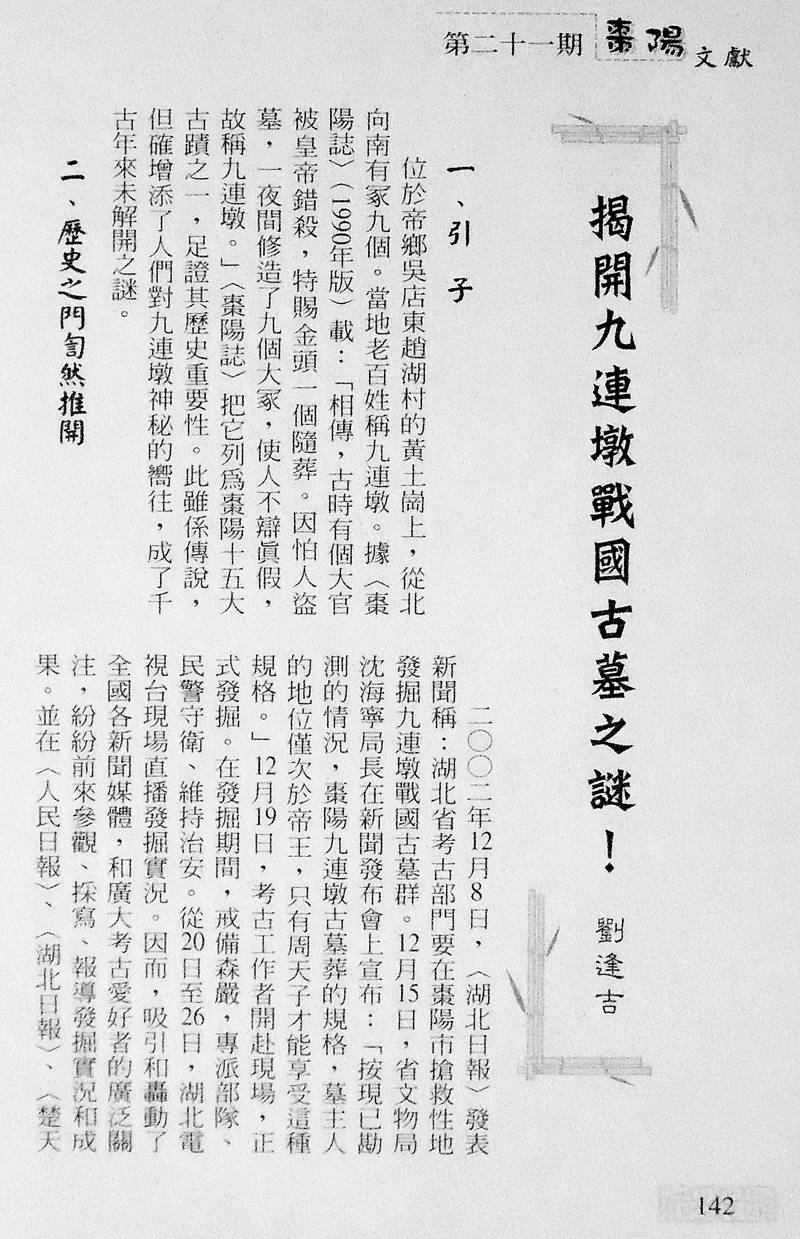 第二十一期 棗陽文獻
揭開九連墩戰國古墓之謎！
劉逢吉
一、引子
位於帝鄉吳店東趙湖村的黃土崗上，從北
向南有冢九個。當地老百姓稱九連墩。據〈棗
陽誌〉（1990年版）載：「相傳，古時有個大官
被皇帝錯殺，特賜金頭一個隨葬。因怕人盜
墓，一夜間修造了九個大冢，使人不辯眞假，
故稱九連墩。」〈棗陽誌〉把它列爲棗陽十五大
古蹟之一，足證其歷史重要性。此雖係傳說，
但確增添了人們對九連墩神秘的嚮往，成了千
古年來未解開之謎。
二、歷史之門訇然推開
二○○二年12月8日，〈湖北日報〉發表
新聞稱：湖北省考古部門要在棗陽市搶救性地
發掘九連墩戰國古墓群。12月15日，省文物局
沈海寧局長在新聞發布會上宣布：「按現已勘
測的情況，棗陽九連墩古墓葬的規格，墓主人
的地位僅次於帝王，只有周天子才能享受這種
規格。」12月19日，考古工作者開赴現場，正
式發掘。在發掘期間，戒備森嚴，專派部隊、
民警守衛、維持治安。從20日至26日，湖北電
視台現場直播發掘實況。因而，吸引和轟動了
全國各新聞媒體，和廣大考古愛好者的廣泛關
注，紛紛前來參觀、採寫、報導發掘實況和成
果。並在〈人民日報〉、〈湖北日報〉、〈楚天
142